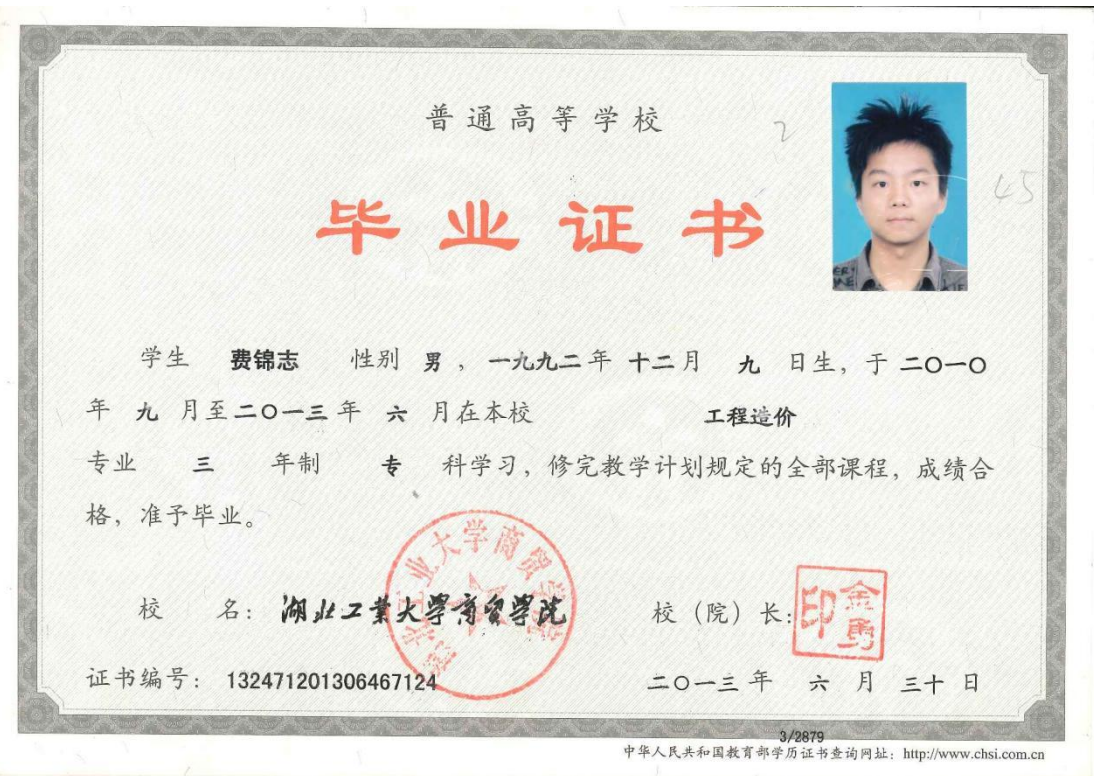 普通高等学校
2
45
毕业证书
学生 费锦志 性别 男，一九九二年 十二月 九 日生，于 二〇一〇
年 九 月至二〇一三年 六 月在本校 工程造价
专业 三 年制 专 科学习，修完教学计划规定的全部课程，成绩合
格，准予毕业。
湖北工业大学商贸学院
校 名：湖北工業大學商貿學院 校（院）长：金勇印
证书编号：132471201306467124 二〇一三年 六 月 三十 日
3/2879
中华人民共和国教育部学历证书查询网址：http://www.chsi.com.cn